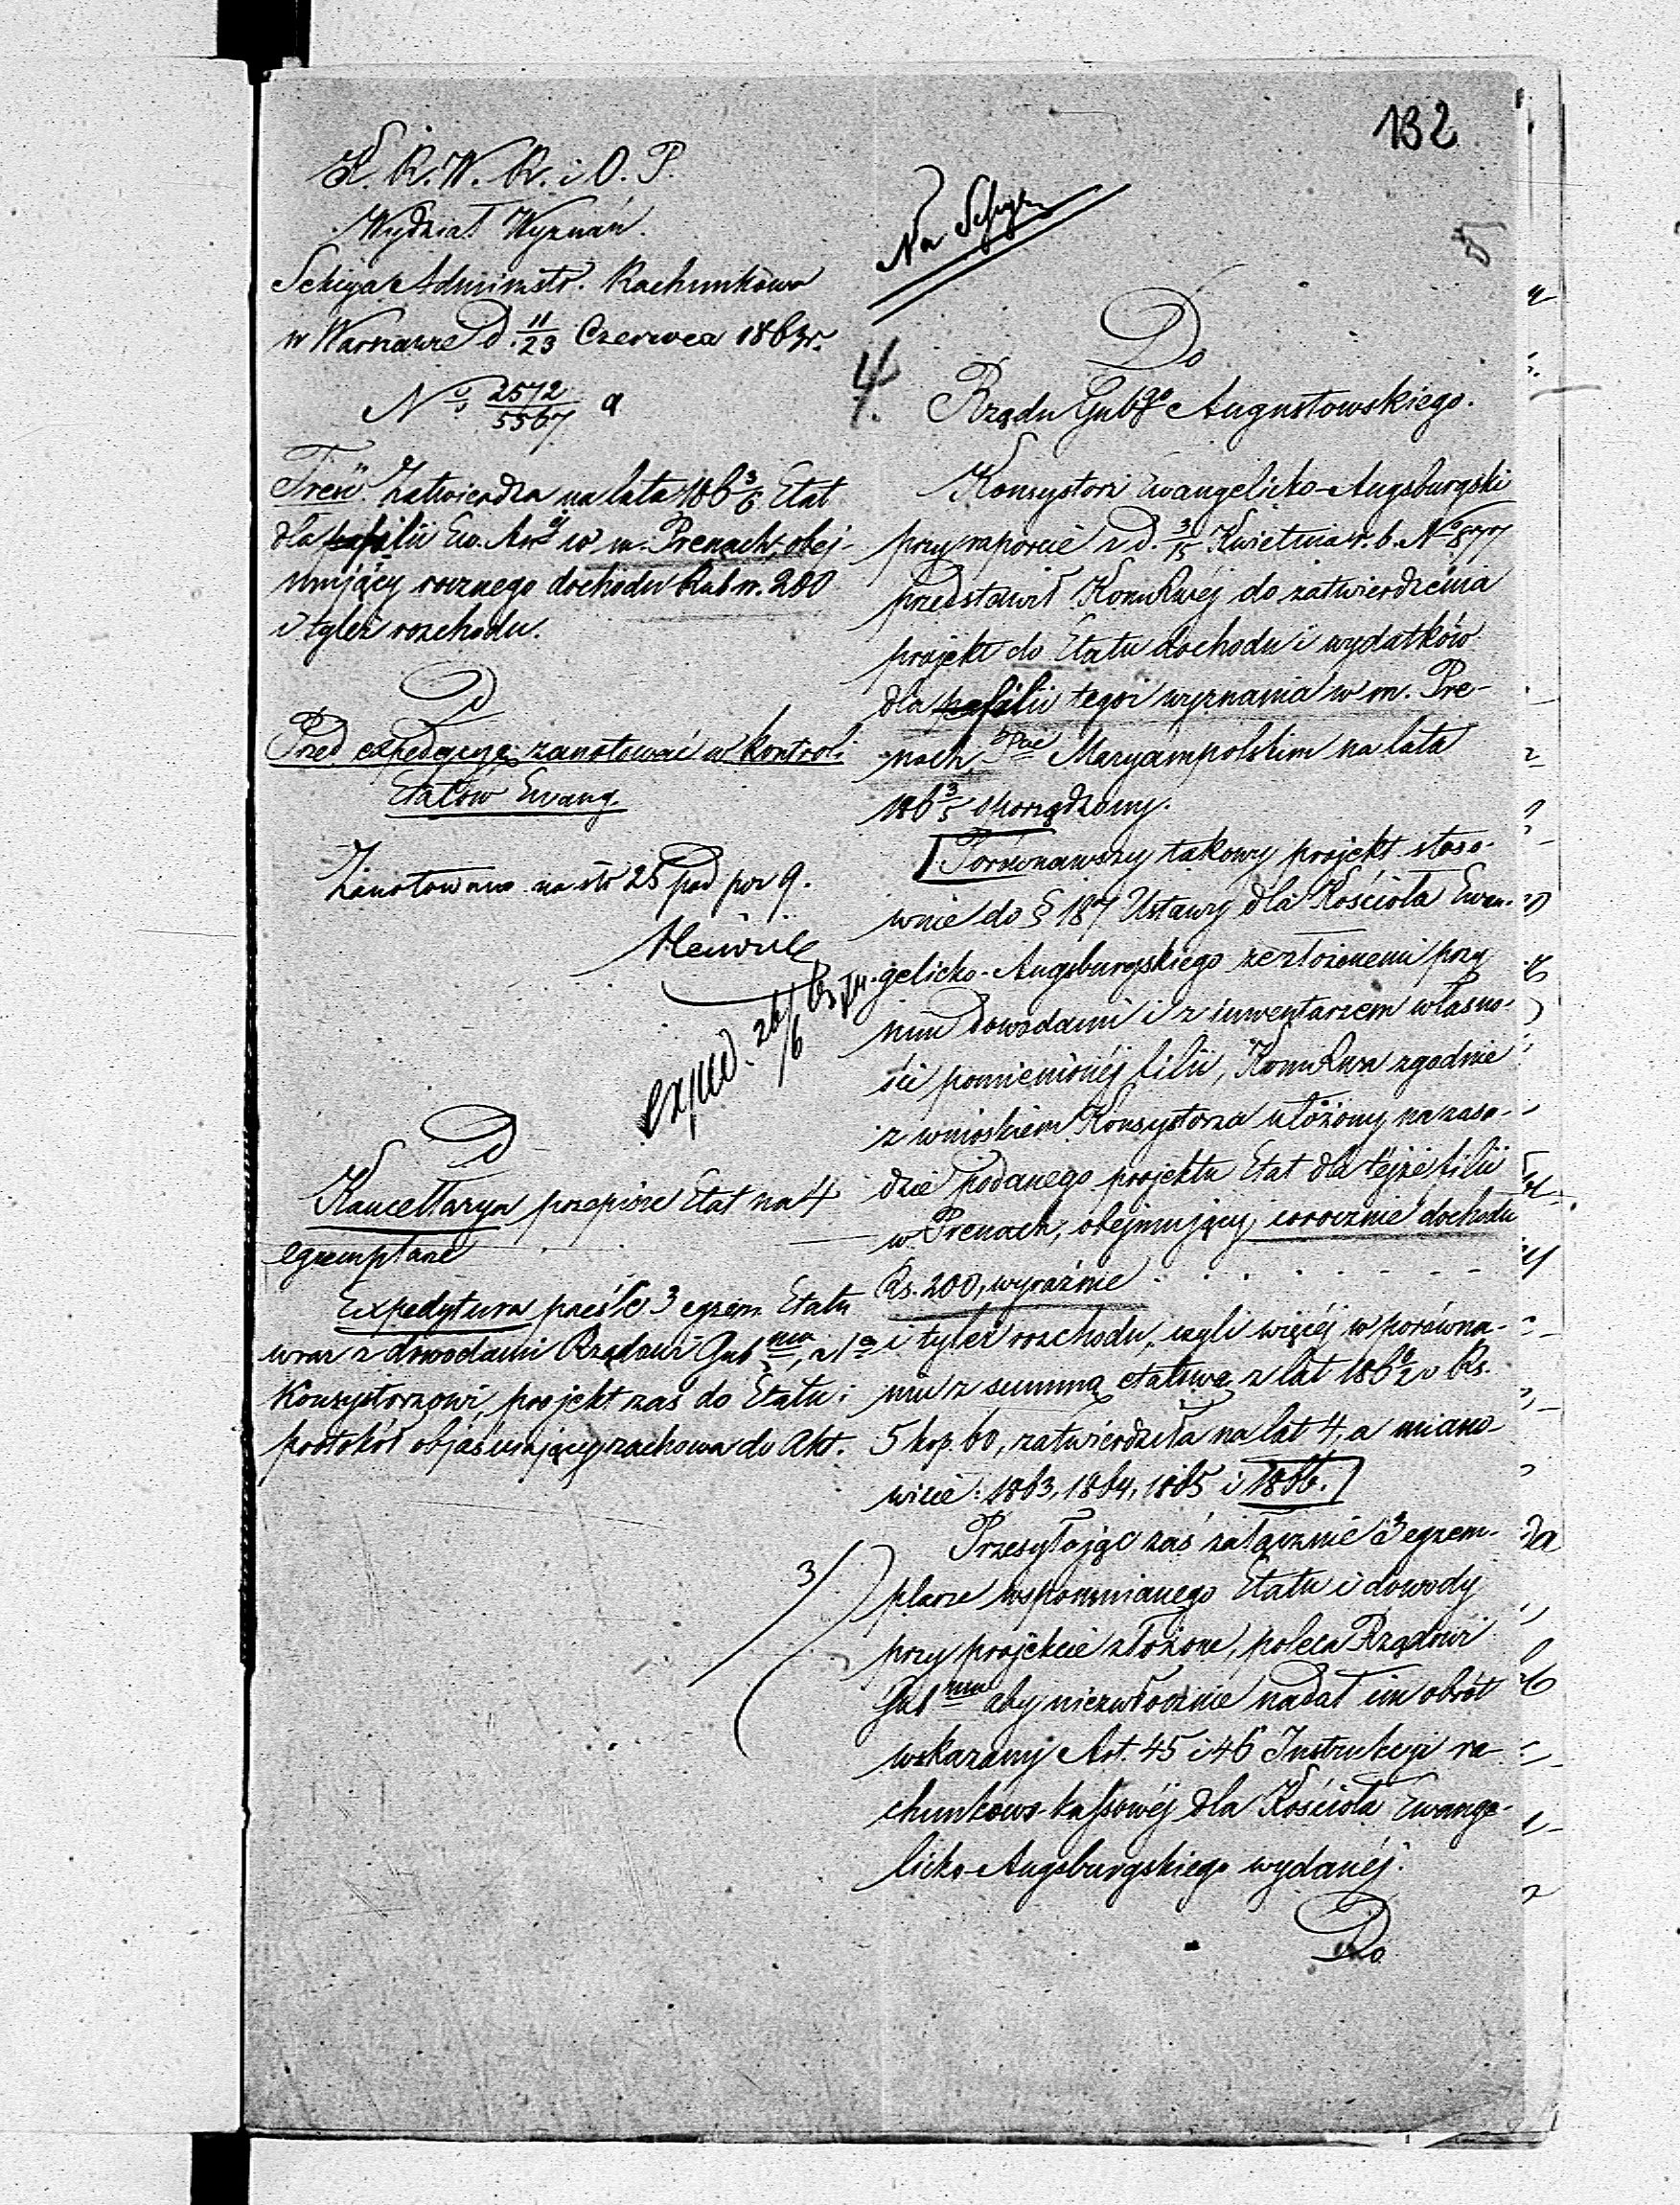 132
K. R. W. R. i O. P.
Wydział Wyznań.
Sekcya Administr. Rachunkowa
w Warszawie d. 11/23 Czerwca 1863 r.
No 2572/5567 a
Treść. Zatwierdza na lata 186 3/6 Etat
dla filii Ew. Augj w m. Prenach, obej-
mujący rocznego dochodu Rub. sr. 200
i tyleż rozchodu.
D
Przed expedycyą zanotować w kontroli
Etatów Ewang.
Zanotowano na str 25 pod poz 9.
exped. 26/6 63
D
Kancellarya przepisze Etat na 4
egzemplarze
Expedytura prześle 3 egzem. Etatu
wraz z dowodami Rządowi Gubmu, a 1n
Konsystorzowi, projekt zaś do Etatu i
protokół objaśniający zachowa do Akt.
4.
Do
Rządu Gubgo Augustowskiego.
Konsystorz Ewangelicko-Augsburgski
przy raporcie z d. 3/15 Kwietnia r. b. No
przedstawił KomRwéj do zatwierdzenia
projekt do Etatu dochodu i wydatków
dla filii tegoż wyznania w m. Pre-
nach, Pcie Maryampolskim na lata
186 3/6 sporządzony.
Porównawszy takowy projekt stoso-
wnie do § 187 Ustawy dla Kościoła Ewan-
gelicko-Augsburgskiego ze złożonemi przy
nim dowodami i z inwentarzem własno-
ści pomienionéj filii, KomRwa zgodnie
z wnioskiem Konsystorza ułożony na zasa-
dzie podanego projektu Etat dla téjże filii
w Prenach, obejmujący corocznie dochodu
Rs. 200, wyraźnie . . . . . . . - - -
i tyleż rozchodu, czyli więcéj w porówna-
niu z summą etatową z lat 186 0/2 o Rs.
5 kop. 60, zatwierdziła na lat 4, a miano-
wicie: 1863, 1864, 1865 i 1866.
Przesyłając zaś załącznie 3 egzem-
plarze wspomnianego Etatu i dowody
przy projekcie złożone, poleca Rządowi
Gubmu aby niezwłocznie nadał im obrót
wskazany Art. 45 i 46 Instrukcyi ra-
chunkowo-kassowéj dla Kościoła Ewange-
licko-Augsburgskiego wydanéj.
Do